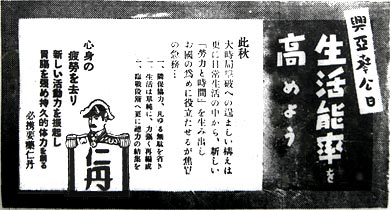 興亞奉公日
生活能率を
高めよう
此秋
大時局突破への逞ましい構えは
更に日常生活の中から、新しい
「勞力と時間」を生み出し
お國の爲めに役立たせるが焦眉
の急務…
一、隣保協力、凡ゆる無駄を省き
一、生活は單純に、力强く再編成
一、臨戰段階へ更に總力の結集を
心身の
疲勞を去り
新しい活動力を振起し
胃腸を强め持久的体力を創る
必携要藥仁丹
仁丹